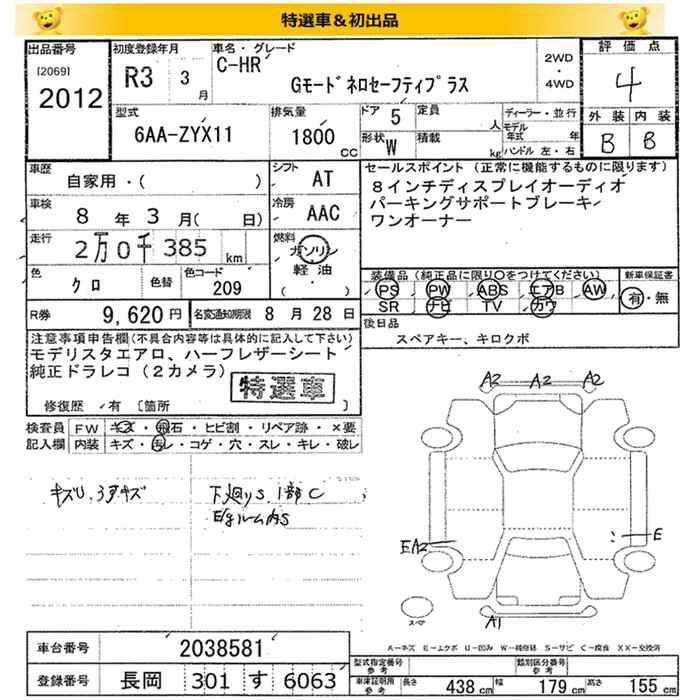 特選車＆初出品
出品番号 初度登録年月 車名・グレード 評価点
[2069] R3 3月 C-HR 2WD・4WD 4
2012 Gモードネロセーフティプラス
型式 排気量 ドア 5 定員 人 ディーラー・並行 外装 内装
6AA-ZYX11 1800 CC 形状 W 積載 kg モデル年式 年 B B
ハンドル 左・右
車歴 自家用・( ) シフト AT セールスポイント (正常に機能するものに限ります)
8インチディスプレイオーディオ
車検 8年 3月( 日) 冷房 AAC パーキングサポートブレーキ
ワンオーナー
走行 2万0千385 km 燃料 ガソリン
軽油
( ・ )
装備品(純正品に限り○をつけてください) 新車保証書
色 クロ 色替 色コード 209 PS PW ABS エアB AW 有・無
SR ナビ TV カワ
R券 9,620円 名変通知期限 8月28日 後日品
スペアキー、キロクボ
注意事項申告欄(不具合内容等は具体的に記入して下さい)
モデリスタエアロ、ハーフレザーシート
純正ドラレコ(2カメラ) 特選車
修復歴 有 [箇所 ]
検査員 FW キズ・飛石・ヒビ割・リペア跡・×要
記入欄 内装 キズ・モレ・コゲ・穴・スレ・キレ・破レ
A2 A2 A2
キズU、3すキズ 下廻りS、1部C
ルーム内S
EA2 E
A1
スペア
A-キズ E-エクボ U-凹み W-補修跡 S-サビ C-腐食 XX-交換済
車台番号 2038581
型式指定番号 参考 類別区分番号 参考
登録番号 長岡 301 す 6063
車庫証明用 参考 長さ 438cm 幅 179cm 高さ 155cm